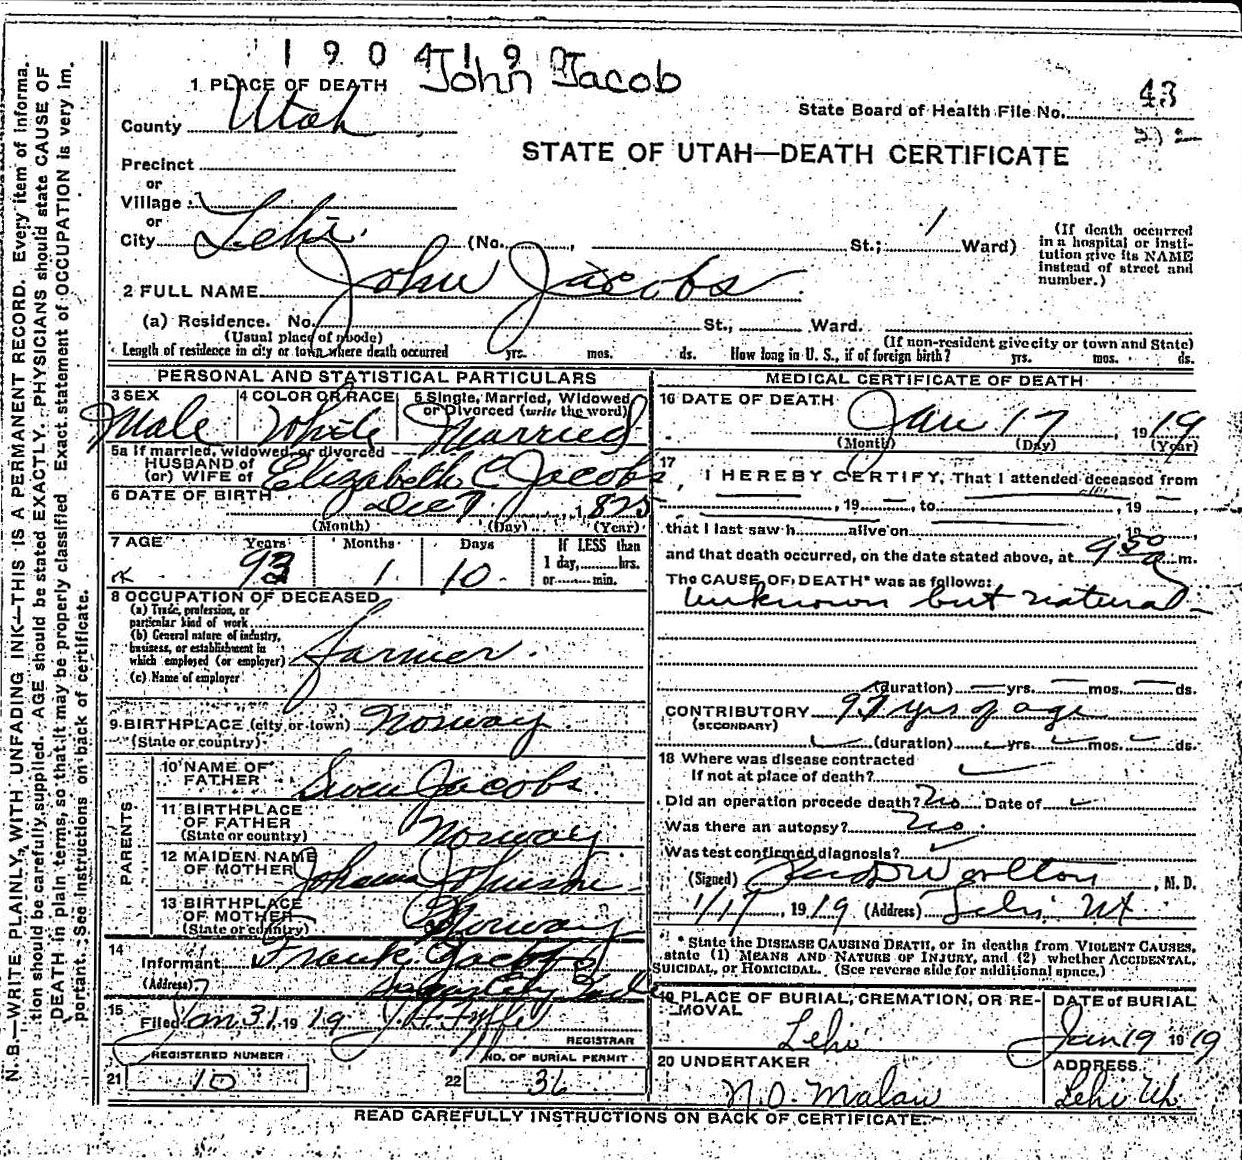 1904190
John Jacob
1 PLACE OF DEATH
State Board of Health File No. 43
County Utah
STATE OF UTAH—DEATH CERTIFICATE
Precinct
or
Village
or
City Lehi (No. , St.; 1 Ward)
(If death occurred in a hospital or insti-
tution give its NAME
instead of street and
number.)
2 FULL NAME John Jacobs
(a) Residence. No. St., Ward.
(Usual place of abode) (If non-resident give city or town and State)
Length of residence in city or town where death occurred yrs. mos. ds. How long in U. S., if of foreign birth? yrs. mos. ds.
PERSONAL AND STATISTICAL PARTICULARS
3 SEX Male
4 COLOR OR RACE White
5 Single, Married, Widowed
or Divorced (write the word)
Married
5a If married, widowed, or divorced
HUSBAND of
(or) WIFE of Elizabeth C Jacobs
6 DATE OF BIRTH Dec 7, 1825
(Month) (Day) (Year)
7 AGE Years Months Days
93 1 10
If LESS than
1 day, hrs.
or min.
8 OCCUPATION OF DECEASED
(a) Trade, profession, or
particular kind of work
(b) General nature of industry,
business, or establishment in
which employed (or employer) farmer
(c) Name of employer
9 BIRTHPLACE (city or town) Norway
(State or country)
PARENTS
10 NAME OF
FATHER Swen Jacobs
11 BIRTHPLACE
OF FATHER
(State or country) Norway
12 MAIDEN NAME
OF MOTHER Johanna Johnson
13 BIRTHPLACE
OF MOTHER
(State or country) Norway
14
Informant Frank Jacobs
(Address)
15
Filed Jan 31, 1919
REGISTRAR
REGISTERED NUMBER NO. OF BURIAL PERMIT
21 10 22 36
MEDICAL CERTIFICATE OF DEATH
16 DATE OF DEATH
Jan 17, 1919
(Month) (Day) (Year)
17
I HEREBY CERTIFY, That I attended deceased from
, 19 , to , 19
that I last saw h alive on 19
and that death occurred, on the date stated above, at 9 30 a m.
The CAUSE OF DEATH* was as follows:
Unknown but natural
(duration) yrs. mos. ds.
CONTRIBUTORY 93 yrs of age
(SECONDARY)
(duration) yrs. mos. ds.
18 Where was disease contracted
If not at place of death?
Did an operation precede death? No Date of
Was there an autopsy? No.
Was test confirmed diagnosis?
(Signed) Worlton, M. D.
1/17, 1919 (Address) Lehi Ut
* State the DISEASE CAUSING DEATH, or in deaths from VIOLENT CAUSES,
state (1) MEANS AND NATURE OF INJURY, and (2) whether ACCIDENTAL,
SUICIDAL, or HOMICIDAL. (See reverse side for additional space.)
19 PLACE OF BURIAL, CREMATION, OR RE-
MOVAL
Lehi
DATE of BURIAL
Jan 19 1919
20 UNDERTAKER
N. O. Malan
ADDRESS
Lehi Ut.
READ CAREFULLY INSTRUCTIONS ON BACK OF CERTIFICATE.
N. B.—WRITE PLAINLY, WITH UNFADING INK—THIS IS A PERMANENT RECORD. Every item of informa-
tion should be carefully supplied. AGE should be stated EXACTLY. PHYSICIANS should state CAUSE OF
DEATH in plain terms, so that it may be properly classified. Exact statement of OCCUPATION is very im-
portant. See instructions on back of certificate.